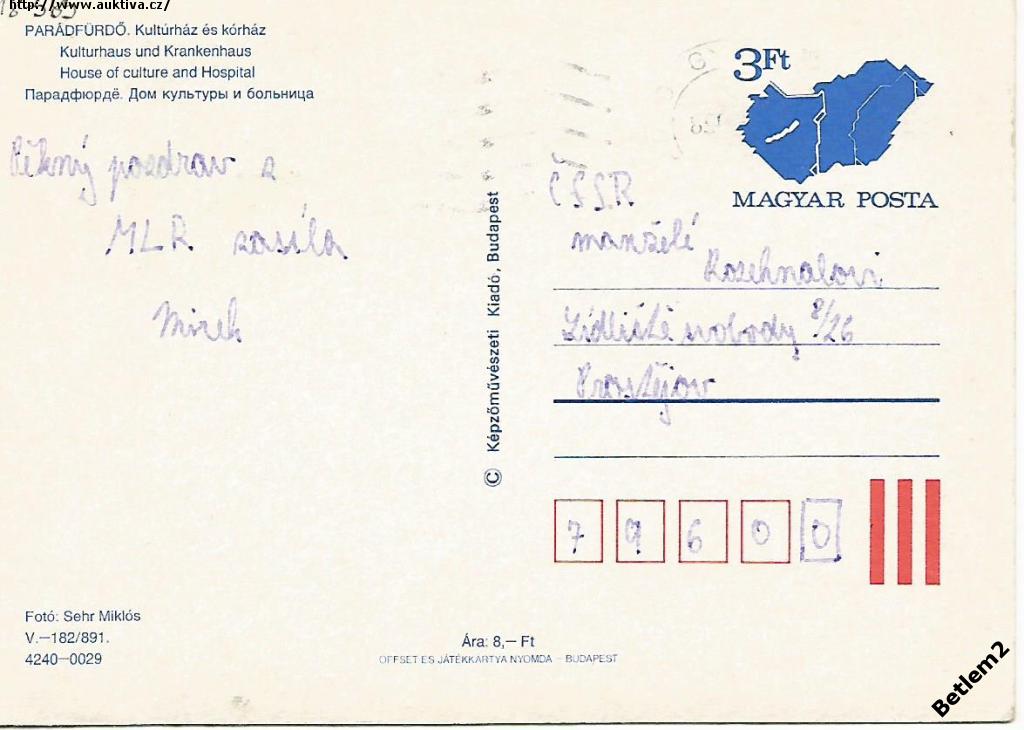 http://www.auktiva.cz/
PARÁDFÜRDŐ. Kultúrház és kórház
Kulturhaus und Krankenhaus
House of culture and Hospital
Парадфюрдё. Дом культуры и больница
Pěkný pozdrav z
MLR zasíla
Mirek
© Képzőművészeti Kiadó, Budapest
3Ft
MAGYAR POSTA
ČSSR
manželé
Rozehnalovi
Sídliště svobody 8/26
Prostějov
7 9 6 0 0
Fotó: Sehr Miklós
V.—182/891.
4240—0029
Ára: 8,— Ft
OFFSET ES JÁTÉKKARTYA NYOMDA – BUDAPEST
Betlem2